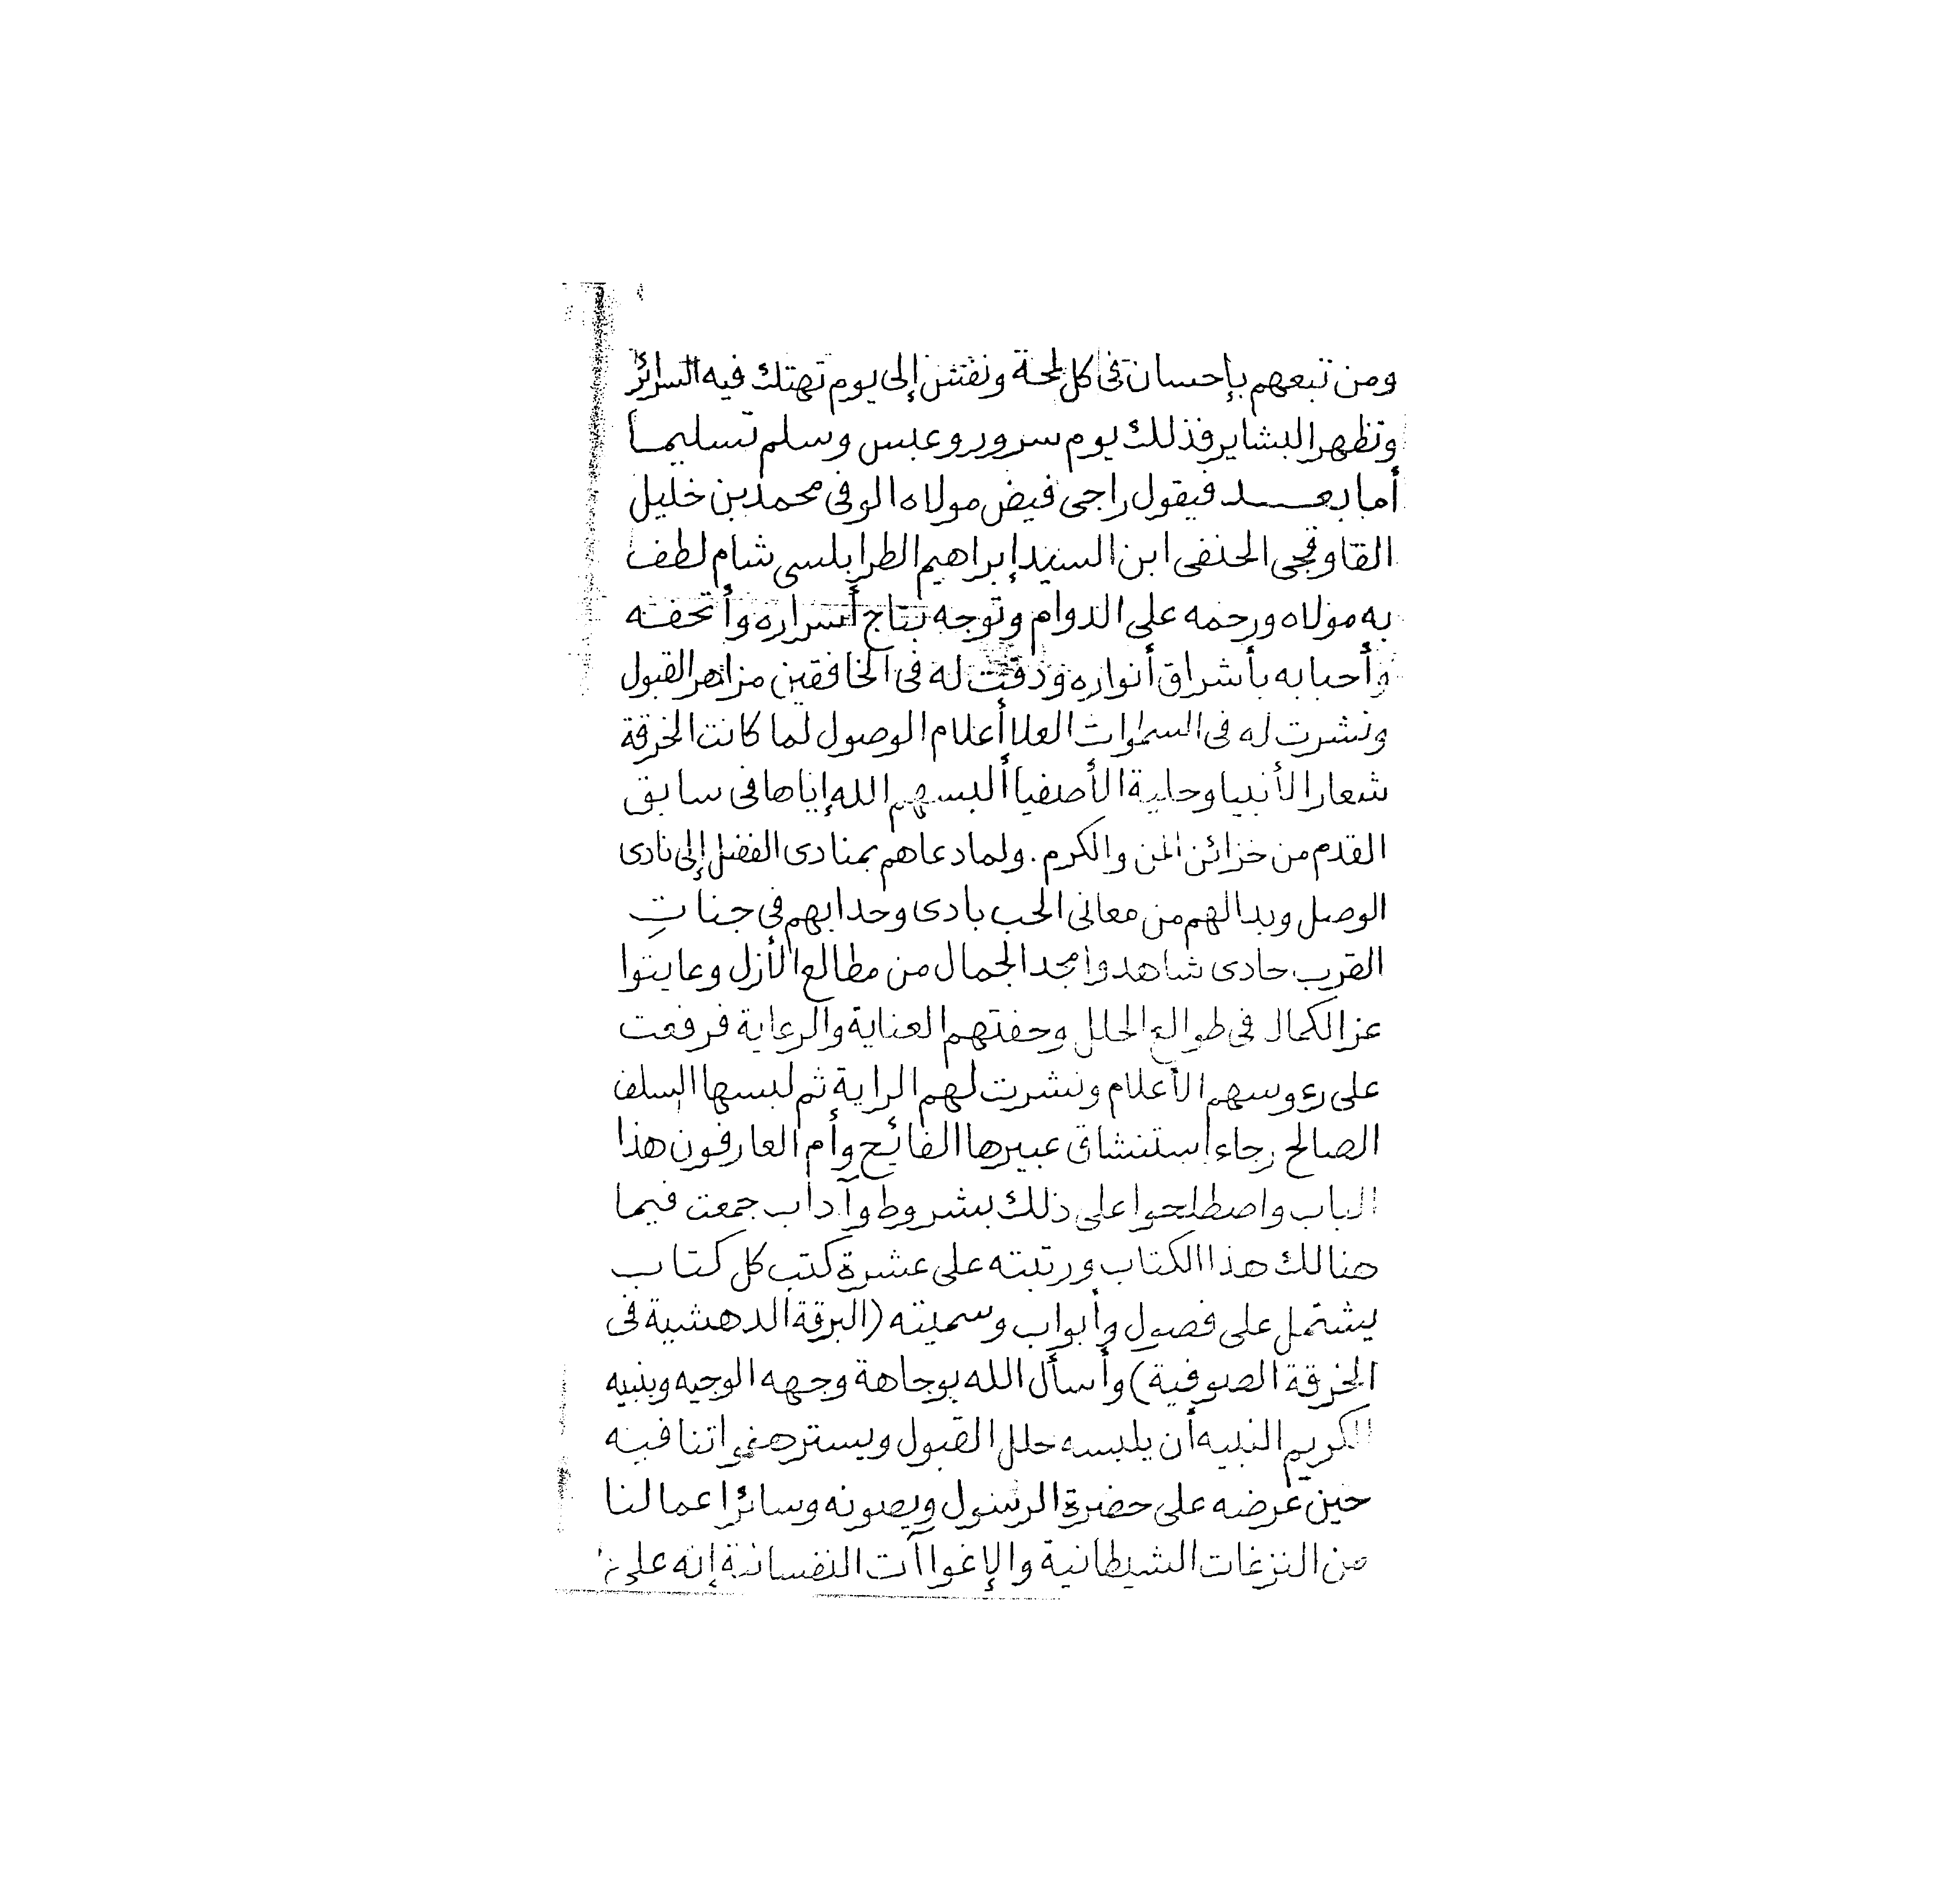 ومن تبعهم بإحسان فى كل لمحة ونفس إلى يوم تهتك فيه السرائر
وتظهر البشاير فذلك يوم سرور وعبس وسلم تسليما
أما بعد فيقول راجى فيض مولاه الوفى محمد بن خليل
القاوقجى الحنفى ابن السيد إبراهيم الطرابلسى شام لطف
به مولاه ورحمه على الدوام وتوجه بتاج أسراره وأتحفه
وأحبابه بأشراق أنواره ودقت له فى الخافقين مزاهر القبول
ونشرت له فى السموات العلا أعلام الوصول لما كانت الخرقة
شعار الأنبيا وحلية الأصفيا ألبسهم الله إياها فى سابق
القدم من خزائن المن والكرم . ولما دعاهم بمنادى الفضل إلى نادى
الوصل وبدا لهم من معانى الحب بادى وحدا بهم فى جناتِ
القرب حادى شاهدوا مجد الجمال من مطالع الأزل وعاينوا
عز الكمال فى طوالع الحلل وحفتهم العناية والرعاية فرفعت
على رءوسهم الأعلام ونشرت لهم الراية ثم لبسها السلف
الصالح رجاء استنشاق عبيرها الفائح وأم العارفون هذا
الباب واصطلحوا على ذلك بشروط وآداب جمعت فيما
هنالك هذا الكتاب ورتبته على عشرة كتب كل كتاب
يشتمل على فصول وأبواب وسميته (البرقة الدهشية فى
الخرقة الصوفية) وأسأل الله بوجاهة وجهه الوجيه وبنبيه
الكريم النبيه أن يلبسه حلل القبول ويستر هفواتنا فيه
حين عرضه على حضرة الرسول ويصونه وسائر اعمالنا
من النزغات الشيطانية والإغواآت النفسانية إنه على